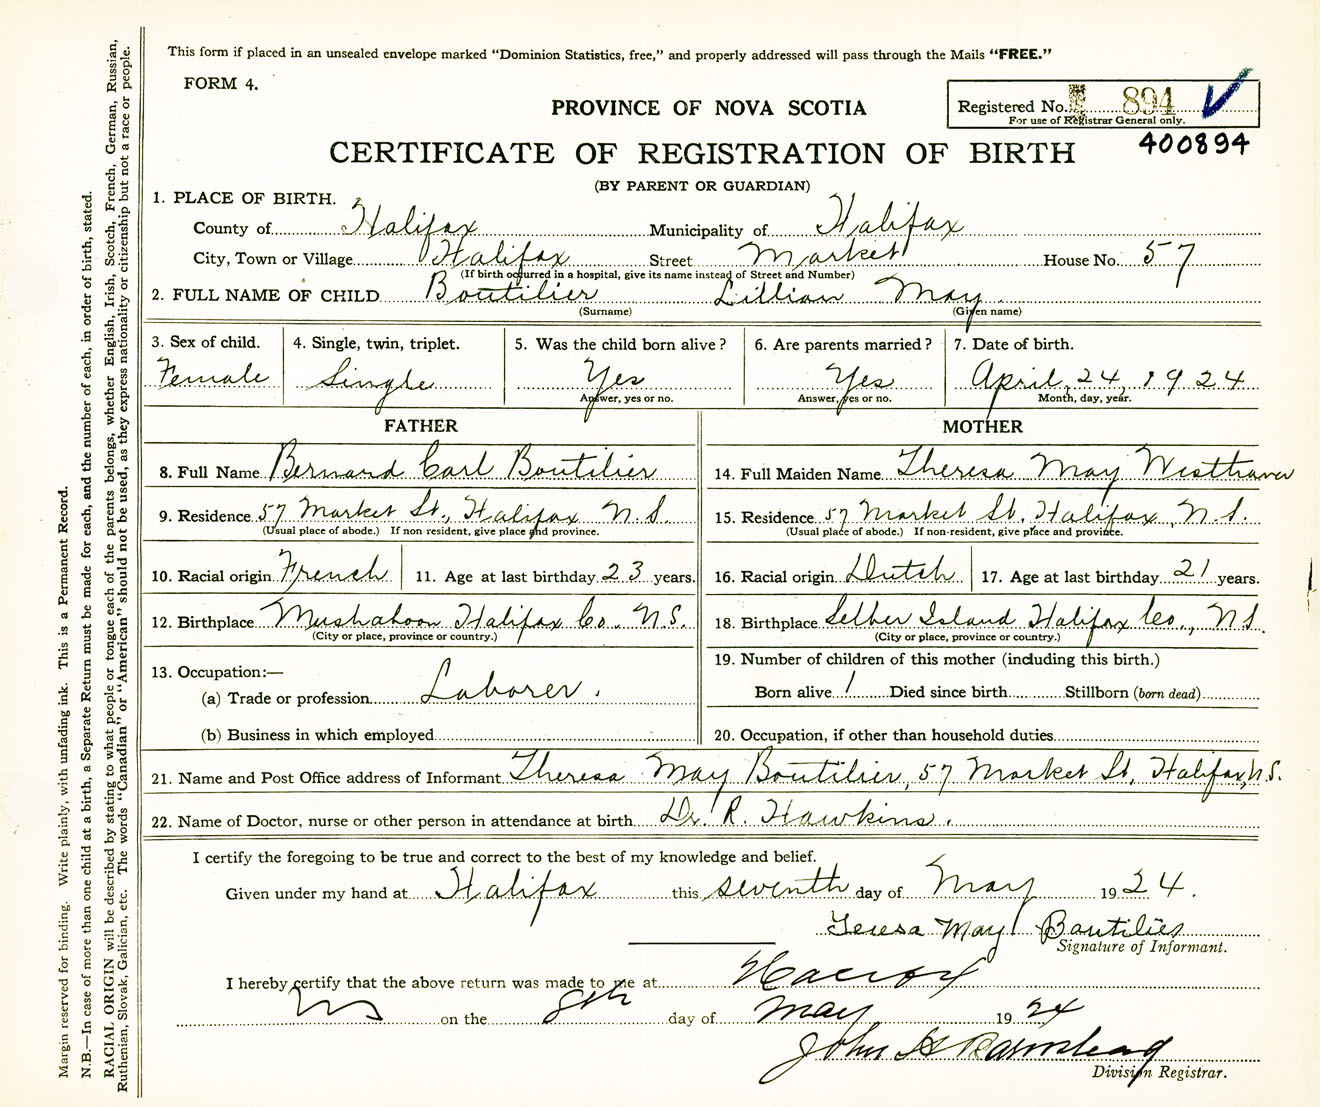 This form if placed in an unsealed envelope marked "Dominion Statistics, free," and properly addressed will pass through the Mails "FREE."
FORM 4.
PROVINCE OF NOVA SCOTIA
Registered No. 894
For use of Registrar General only.
400894
CERTIFICATE OF REGISTRATION OF BIRTH
(BY PARENT OR GUARDIAN)
1. PLACE OF BIRTH.
County of Halifax Municipality of Halifax
City, Town or Village Halifax Street Market House No. 57
(If birth occurred in a hospital, give its name instead of Street and Number)
2. FULL NAME OF CHILD Boutilier Lillian May
(Surname) (Given name)
3. Sex of child. 4. Single, twin, triplet. 5. Was the child born alive? 6. Are parents married? 7. Date of birth.
Female Single Yes Yes April, 24, 1924
Answer, yes or no. Answer, yes or no. Month, day, year.
FATHER MOTHER
8. Full Name Bernard Carl Boutilier 14. Full Maiden Name Theresa May Westhaver
9. Residence 57 Market St., Halifax N.S. 15. Residence 57 Market St. Halifax, N.S.
(Usual place of abode.) If non-resident, give place and province. (Usual place of abode.) If non-resident, give place and province.
10. Racial origin French 11. Age at last birthday 23 years. 16. Racial origin Dutch 17. Age at last birthday 21 years.
12. Birthplace Mushaboon Halifax Co. N.S. 18. Birthplace Island Halifax Co., N.S.
(City or place, province or country.) (City or place, province or country.)
13. Occupation:— 19. Number of children of this mother (including this birth.)
(a) Trade or profession Laborer. Born alive 1 Died since birth Stillborn (born dead)
(b) Business in which employed 20. Occupation, if other than household duties
21. Name and Post Office address of Informant Theresa May Boutilier, 57 Market St, Halifax, N.S.
22. Name of Doctor, nurse or other person in attendance at birth Dr. R. Hawkins.
I certify the foregoing to be true and correct to the best of my knowledge and belief.
Given under my hand at Halifax this seventh day of May 1924.
Teresa May Boutilier
Signature of Informant.
I hereby certify that the above return was made to me at Halifax
NS on the 8th day of May 1924
John H
Division Registrar.
Margin reserved for binding. Write plainly, with unfading ink. This is a Permanent Record.
N.B.—In case of more than one child at a birth, a Separate Return must be made for each, and the number of each, in order of birth, stated.
RACIAL ORIGIN will be described by stating to what people or tongue each of the parents belongs, whether English, Irish, Scotch, French, German, Russian,
Ruthenian, Slovak, Galician, etc. The words "Canadian" or "American" should not be used, as they express nationality or citizenship but not a race or people.